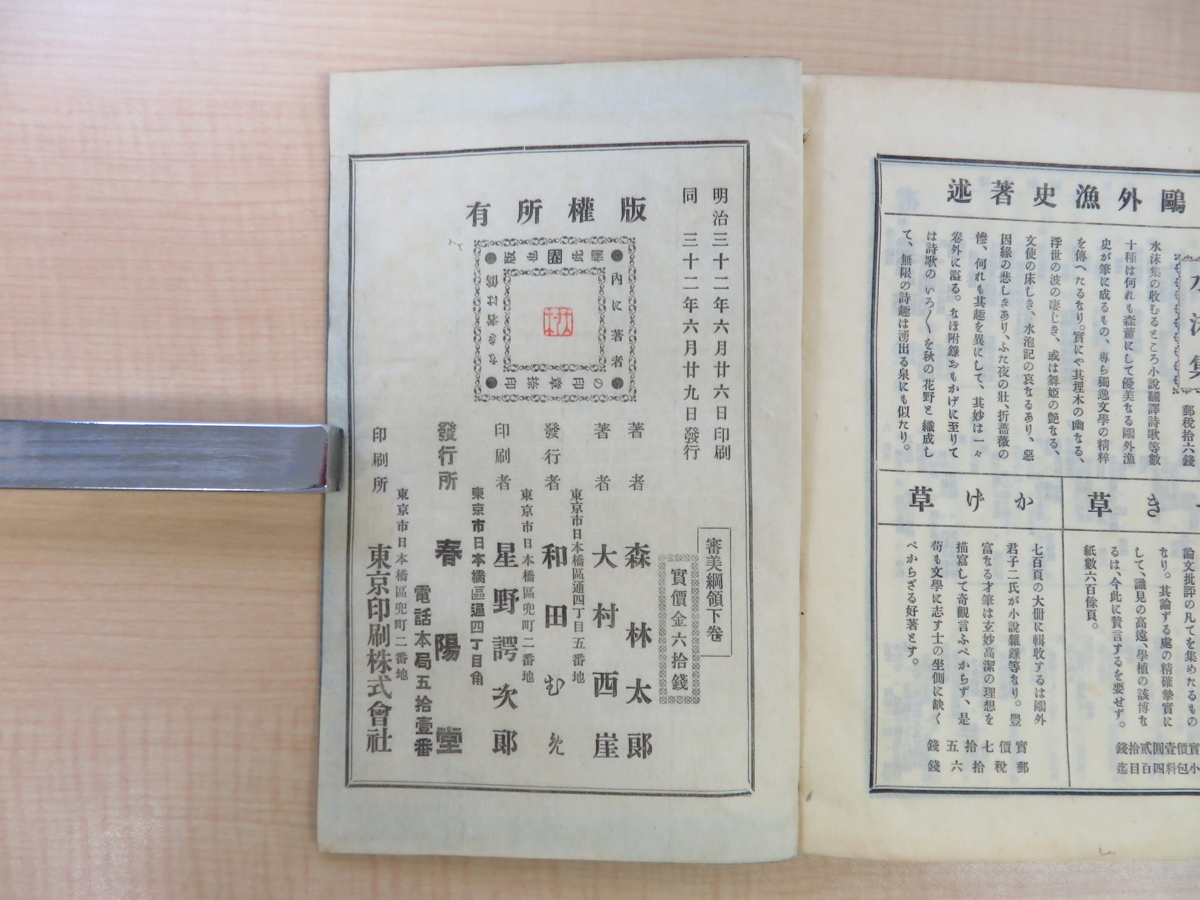 鷗外漁史著述
水沫集
郵稅拾六錢
水沫集の收むるところ小說飜譯詩歌等數
十種は何れも森蕭にして優美なる鷗外漁
史が筆に成るもの、專ら獨逸文學の精粹
を傳へたるなり。實にや其埋木の幽なる、
浮世の波の凄じき、或は舞姬の艶なる、
文使の床しき、水泡記の哀なるあり、惡
因緣の悲しきあり、ふた夜の壯、折薔薇の
慘、何れも其趣を異にして、其妙は一々
卷外に溢る。なほ附錄おもかげに至りて
は詩歌のいろ〳〵を秋の花野と織成し
て、無限の詩趣は湧出る泉にも似たり。
き草
論文批評の凡てを集めたるもの
なり。其論ずる處の精確摯實に
して、識見の高遠、學植の該博な
るは、今此に贅言するを要せず。
紙數六百餘頁。
實價壹圓貳拾錢
小包料四百目迄
かげ草
七百頁の大冊に輯收するは鷗外
君子二氏が小說雜錄等なり。豐
富なる才筆は玄妙高潔の理想を
描寫して奇觀言ふべからず、是
苟も文學に志す士の坐側に缺く
べからざる好著とす。
實價七拾五錢
郵稅拾六錢
明治三十二年六月廿六日印刷
同 三十二年六月廿九日發行
版權所有
內に著者
の印
なき者は僞
審美綱領下卷
實價金六拾錢
著者 森林太郎
著者 大村西崖
東京市日本橋區通四丁目五番地
發行者 和田むめ
東京市日本橋區兜町二番地
印刷者 星野諤次郎
東京市日本橋區通四丁目角
發行所 春陽堂
電話本局五拾壹番
東京市日本橋區兜町二番地
印刷所 東京印刷株式會社